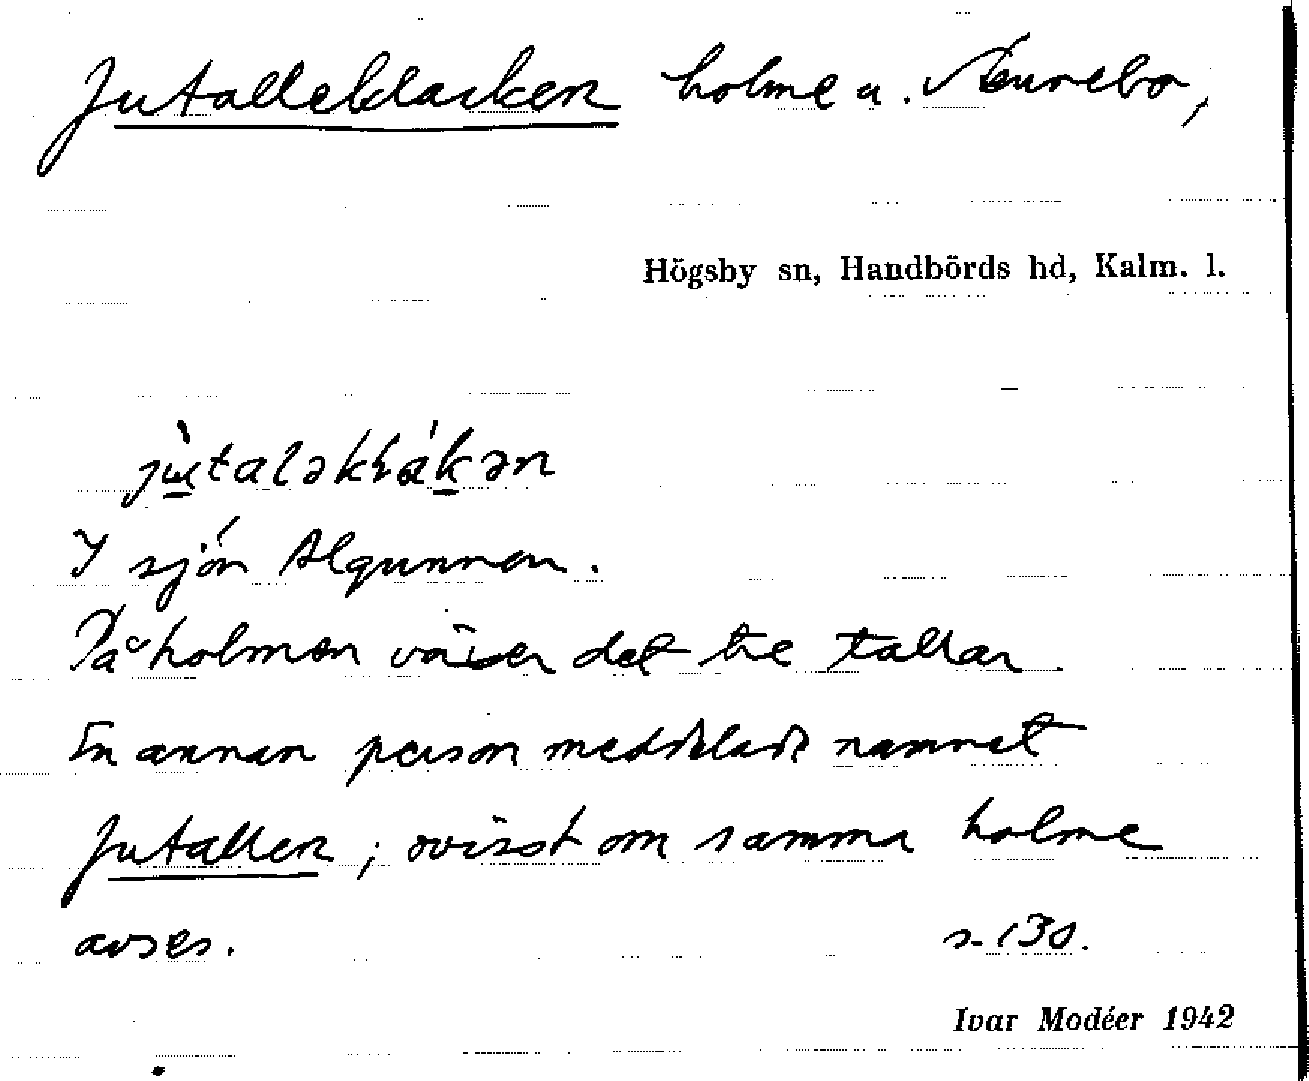 Jutalleklacken holme u. Aurebo,
Högsby sn, Handbörds hd, Kalm. l.
I sjön Algunnen.
På holmen växer det tre tallar.
En annan person meddelade namnet
Jutallen; ovisst om samma holme
avses. s. 130.
Ivar Modéer 1942